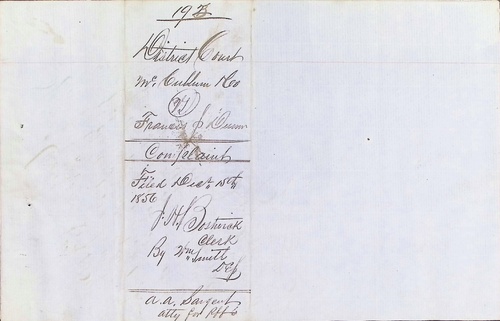 District Court
Mc.Cullum & Co
vs
Francis J Dunn
Complaint
Filed Dect. 15th
1856
J. H. Bostwick
Clerk
By Wm Smith
Dep
A. A. Sargent
atty for Plffs